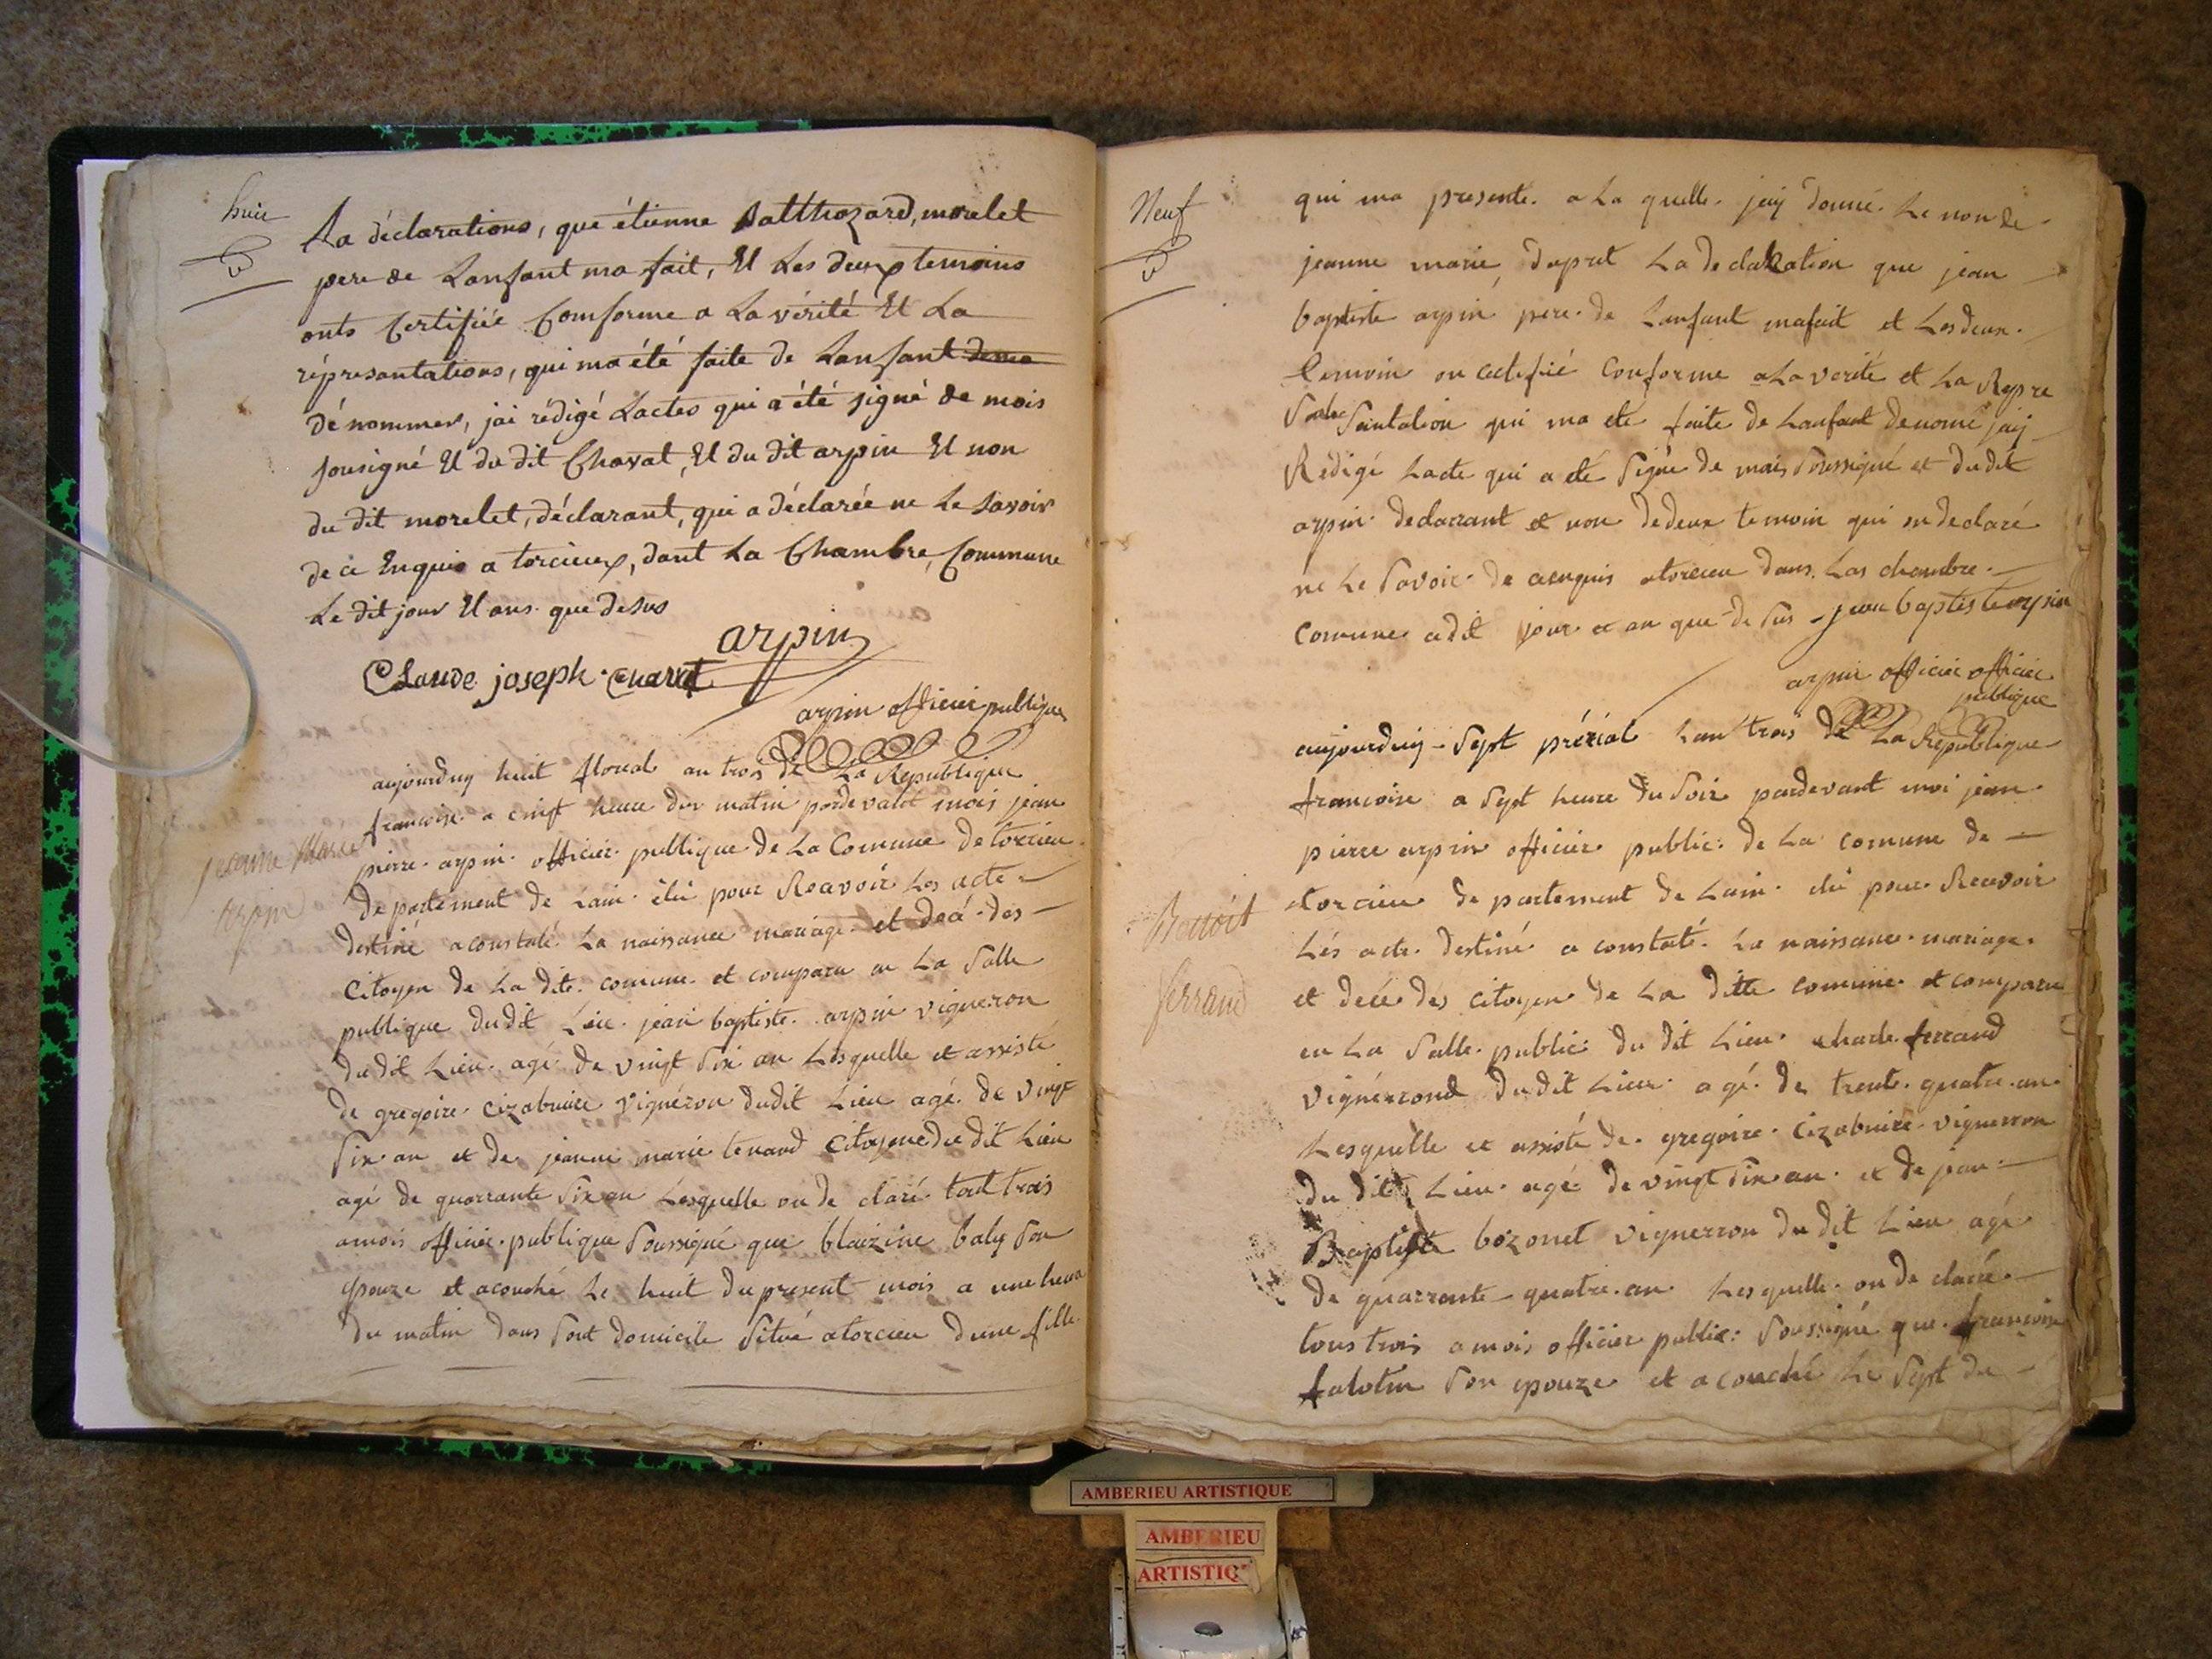 huit
La déclarations, que étienne Balthazard, morelet
pere de Lanfant ma fait, Et Les deux temoins
onts Certifiée Comforme a La vérité Et La
réprésantations, qui ma été faite de Lanfant
dénommer, jai rédigé Lactes qui a été signé de mois
sousigné Et du dit Chavat, Et du dit arpin Et non
du dit morelet, déclarant, qui a déclarée ne Le Savoir
de ce Enquis a torcieux, dant La Chambre, Commune
Le dit jour Et ans que desus
arpin
Claude joseph Charat
arpin officier publique
aujourduy huit floreal an trois de La Republique
francoise a cinqt heure du matin pardevant mois jean
pierre arpin officier publique de La Comune de torcieu
departement de Lain élu pour Reavoir Les acte
destiné a constaté La naissance mariage et decé des
Citoyen de La dite comune et comparu en La Salle
publique dudit Lieu jean baptiste arpin vigneron
dudit Lieu agé de vingt Six an Lesquelle et assisté
de gregoire cizabuire vignéron dudit Lieu agé de vingt
Six an et de jeanne marie tenand Citoyene du dit Lieu
agé de quarrante Six an Lesquelle on de claré tout trois
amois officier publique Soussigné que blaizine baly Son
epouze et acouché Le huit du present mois a une heure
du matin dans Sout domicile Situé atorcieu dune fille
jeanne Marie
arpin
Neuf
qui ma presenté a La quelle jaij donné Le non de
jeanne marie dapret La declaration que jean
baptiste arpin pere de Lanfant mafait et Lesdeux
temoin on cectifié Conforme aLa verité et La Repre
Santation qui ma eté faite de Lanfant denomé jaij
Redigé Lacte qui a eté Signé de mois Soussigné et dudit
arpin declarrant et non dedeux temoin qui on declaré
ne Le Savoir de acenquis atorcieu dans Las chambre
Comune a dit jour et an que de Sus jean baptiste arpin
arpin officier officier
publique
aujourduij Sept prérial Lan trois de La Republique
francoise a Sept heure du Soir pardevant moi jean
pierre arpin officier public de La comune de
torcieu departement de Lain élu pour Recevoir
Lés acte destiné a constaté La naissance mariage
et decée dés citoyen de La ditte comune et comparu
en La Salle public du dit Lieu charle ferrand
vignérrond dudit Lieu agé de trente quatre an
Lesquelle et assisté de gregoire Cizabuire vignerron
du dit Lieu agé de vingt Six an et de jean
Baptiste bozonet vignerron du dit Lieu agé
de quarrante quatre an Lesquelle on de claré
tous trois a mois officier public Soussigné que francoise
falotin Son epouze et a couché Le Sept du
Benoit
ferrand
AMBERIEU ARTISTIQUE
AMBERIEU
ARTISTIQ